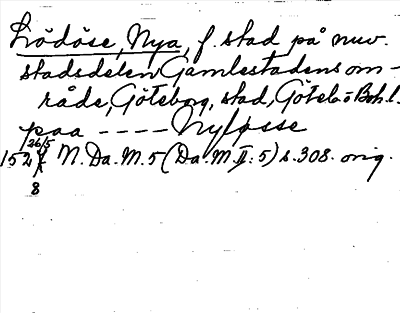 Lödöse, Nya, f. stad på nuv.
stadsdelen Gamlestadens om-
råde, Göteborg, stad, Göteb. o Boh. l.
paa ---- Nyløsse
26/5
152 N. Da. M. 5 (Da. M. II: 5) s. 308. orig.
8